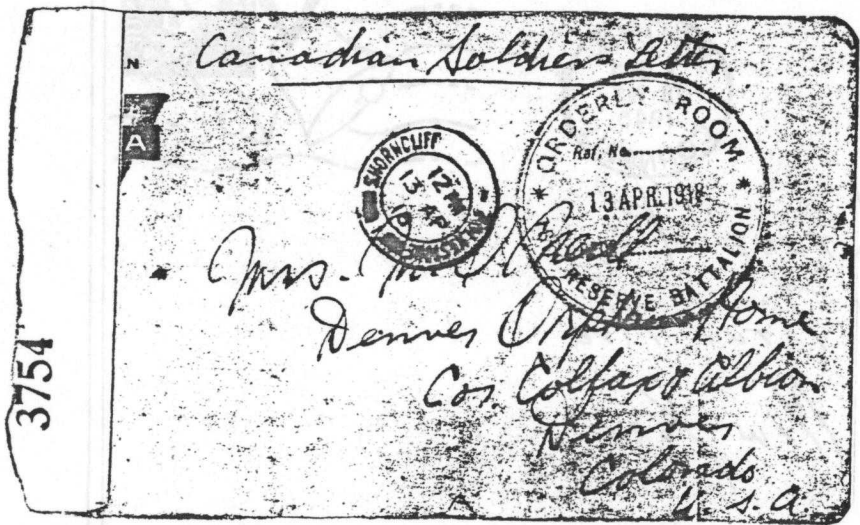 Canadian Soldiers Letter.
N
A
SHORNCLIFF
12 PM
13 AP
18
ORDERLY ROOM
Ref. No.
13 APR. 1918
RESERVE BATTALION
Mrs. M.
Denver Orphans Home
Cor. Colfax & Albion
Denver
Colorado
U.S.A.
3754